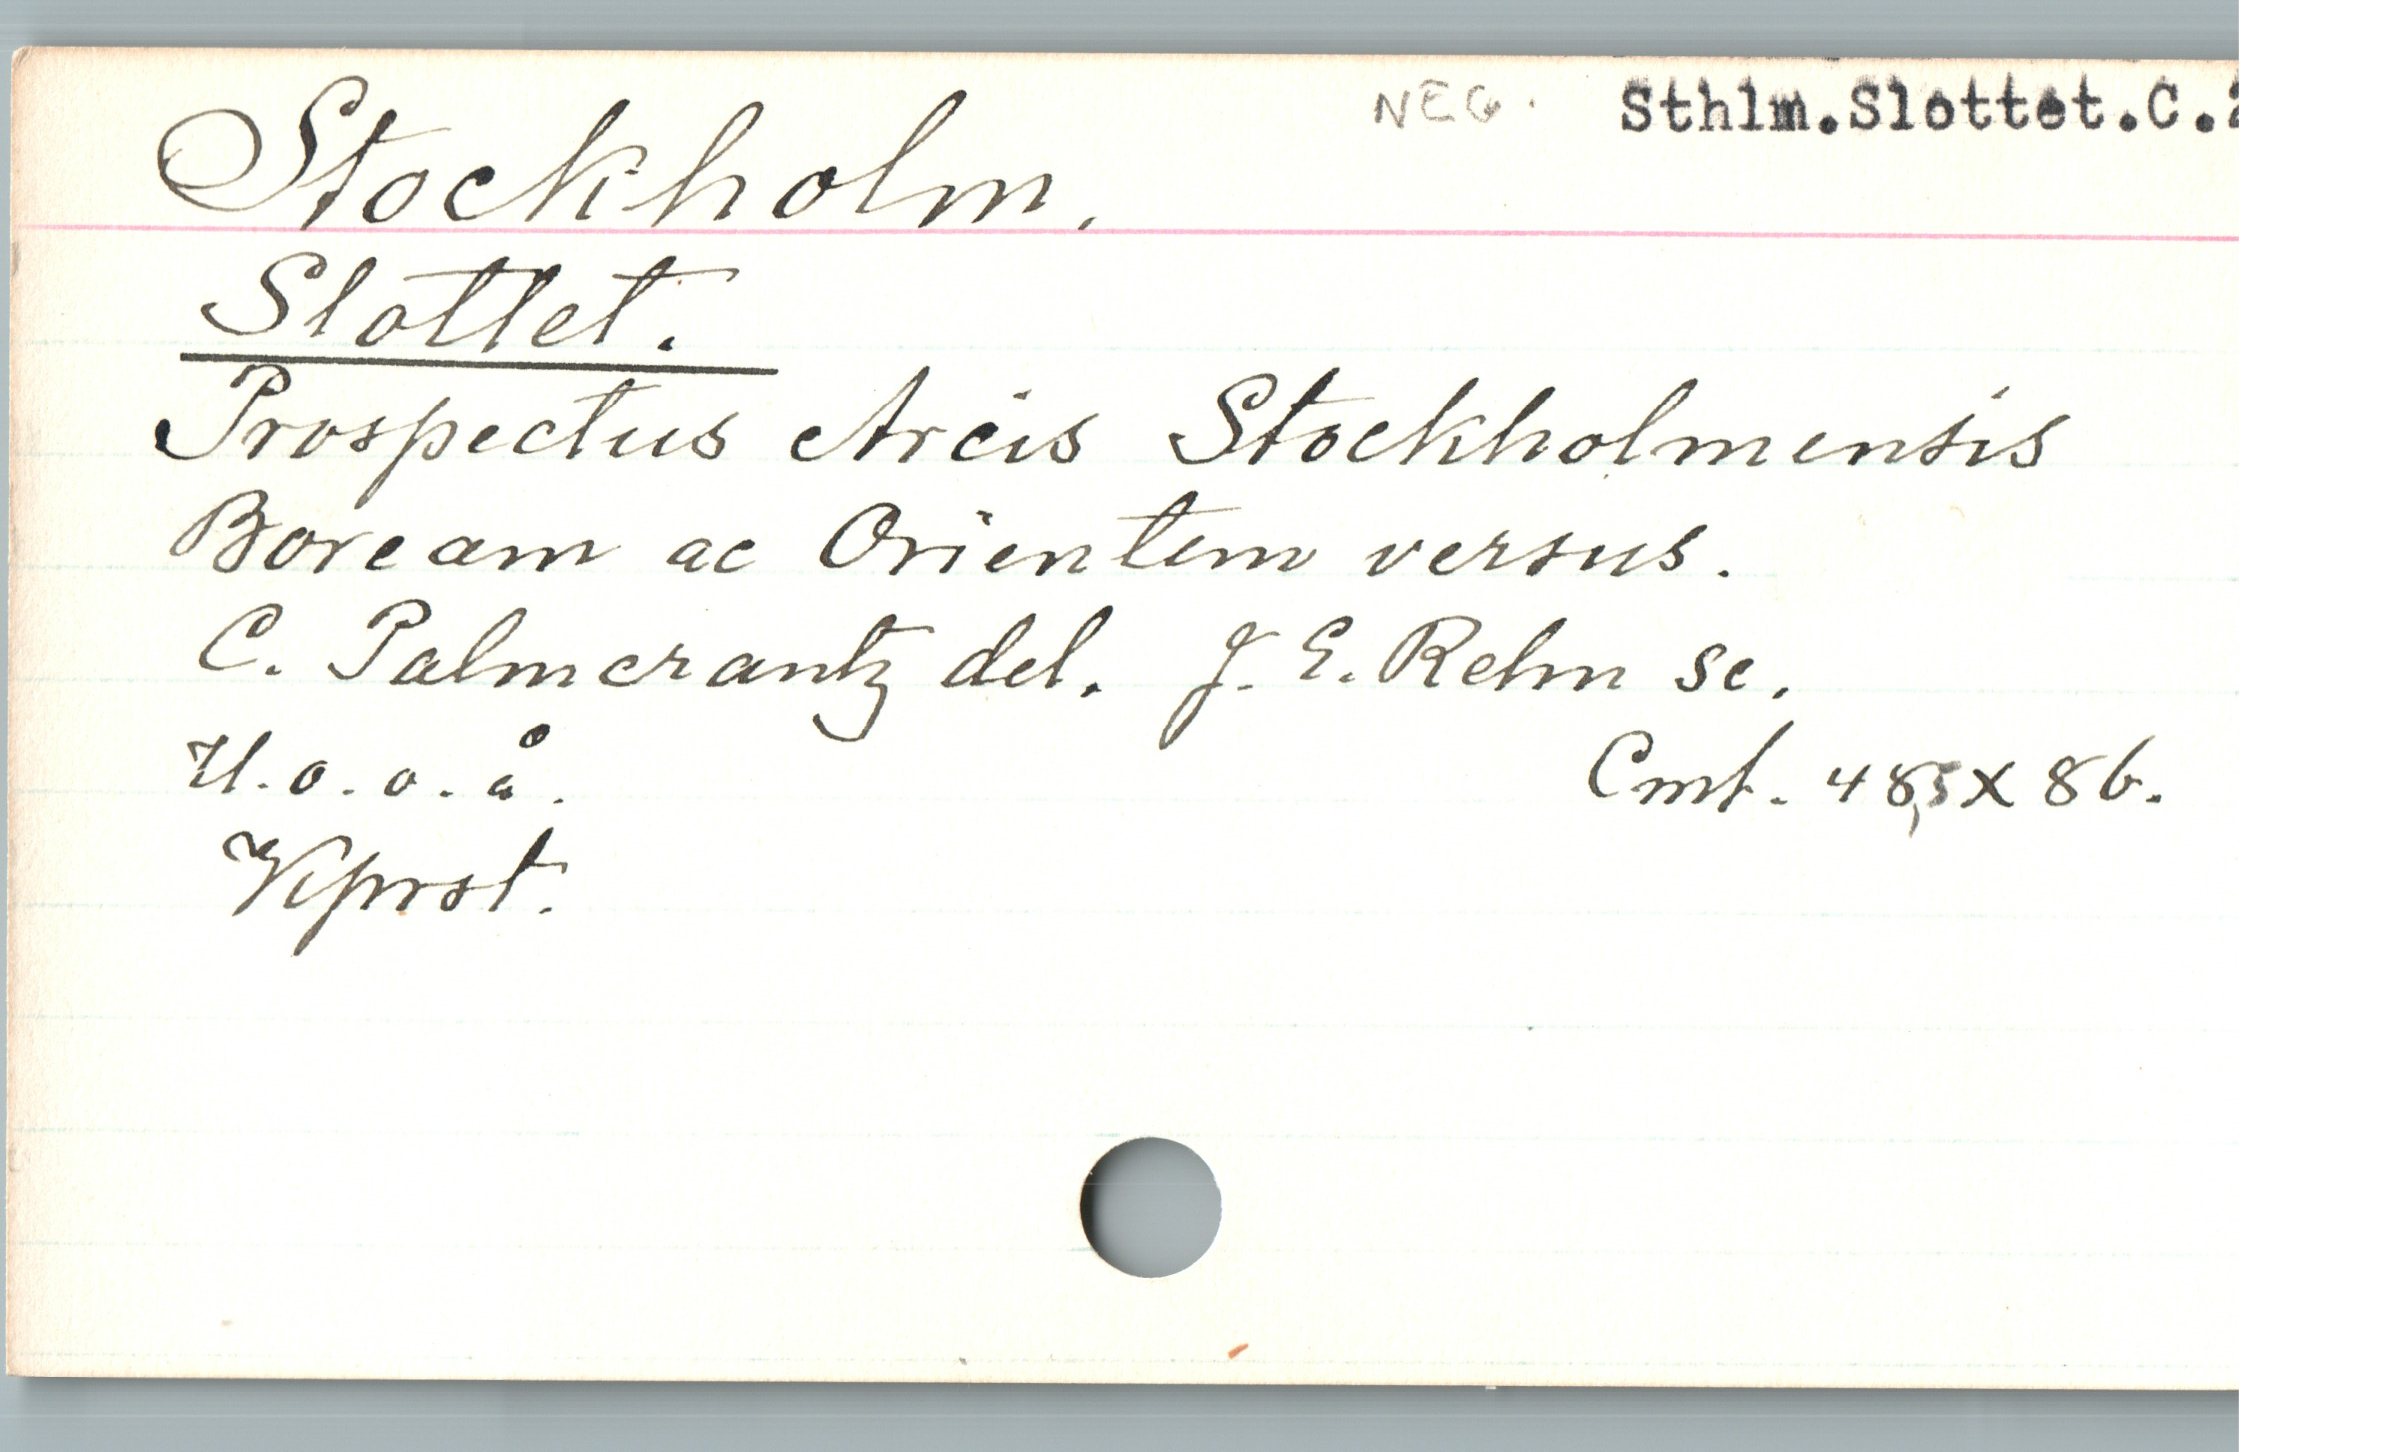 NEG. Sthlm.Slottet.C.
Stockholm.
Slottet.
Prospectus Arcis Stockholmensis
Boream ac Orientem versus.
C. Palmcrantz del. J. E. Rehn sc.
U. o. o. å. Cmt. 48,5 X 86.
Kprst.